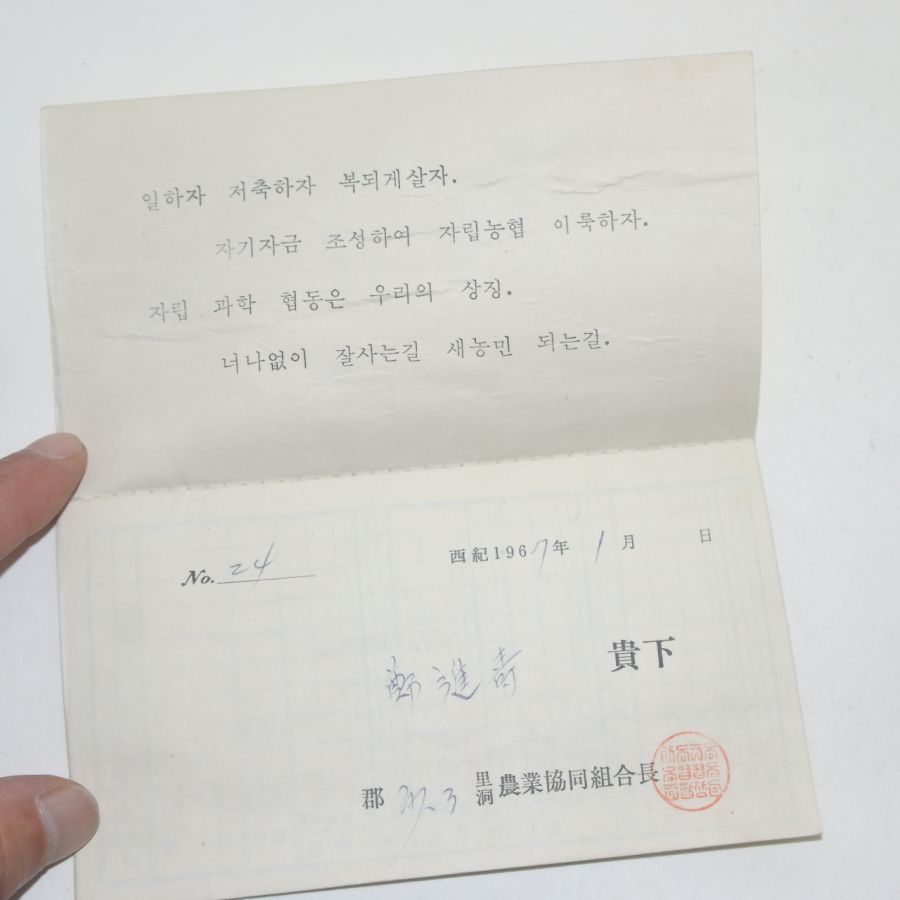 일하자 저축하자 복되게살자.
자기자금 조성하여 자립농협 이룩하자.
자립 과학 협동은 우리의 상징.
너나없이 잘사는길 새농민 되는길.
No. 24
西紀1967年 1月 日
鄭進壽 貴下
郡 里洞 農業協同組合長